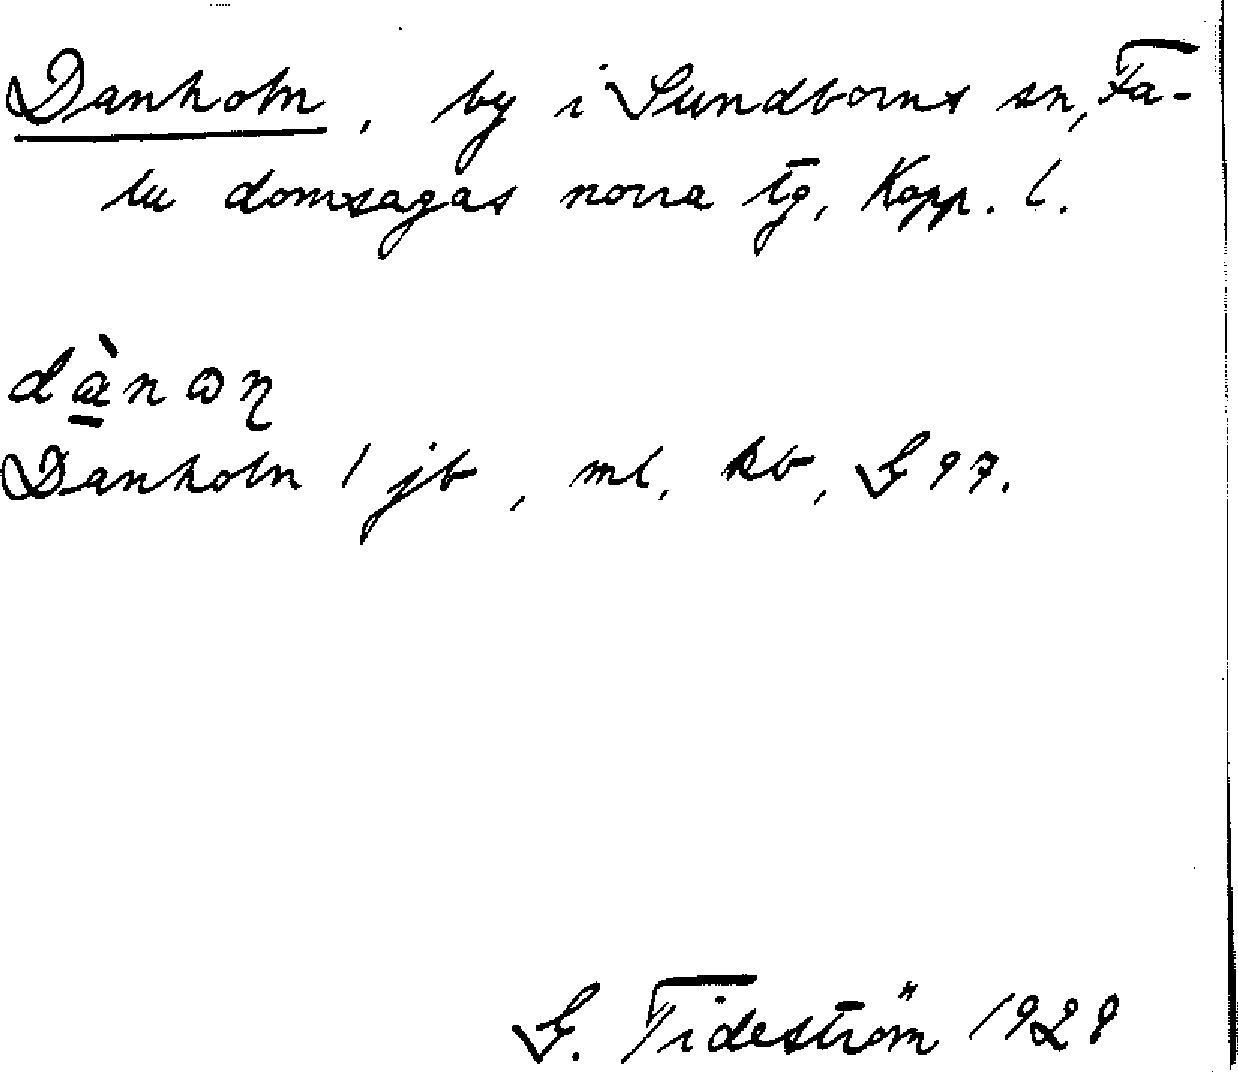 Danholn, by i Sundborns sn, Fa-
lu domsagas norra tg, Kopp. l.
Danholn / jb, ml, kb, G 97.
G. Tideström 1928